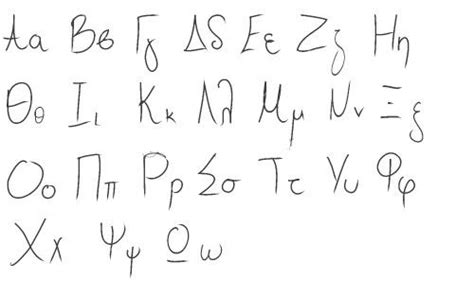 Αα Ββ Γγ Δδ Εε Ζζ Ηη
Θθ Ιι Κκ Λλ Μμ Νν Ξξ
Οο Ππ Ρρ Σσ Ττ Υυ Φφ
Χχ Ψψ Ωω